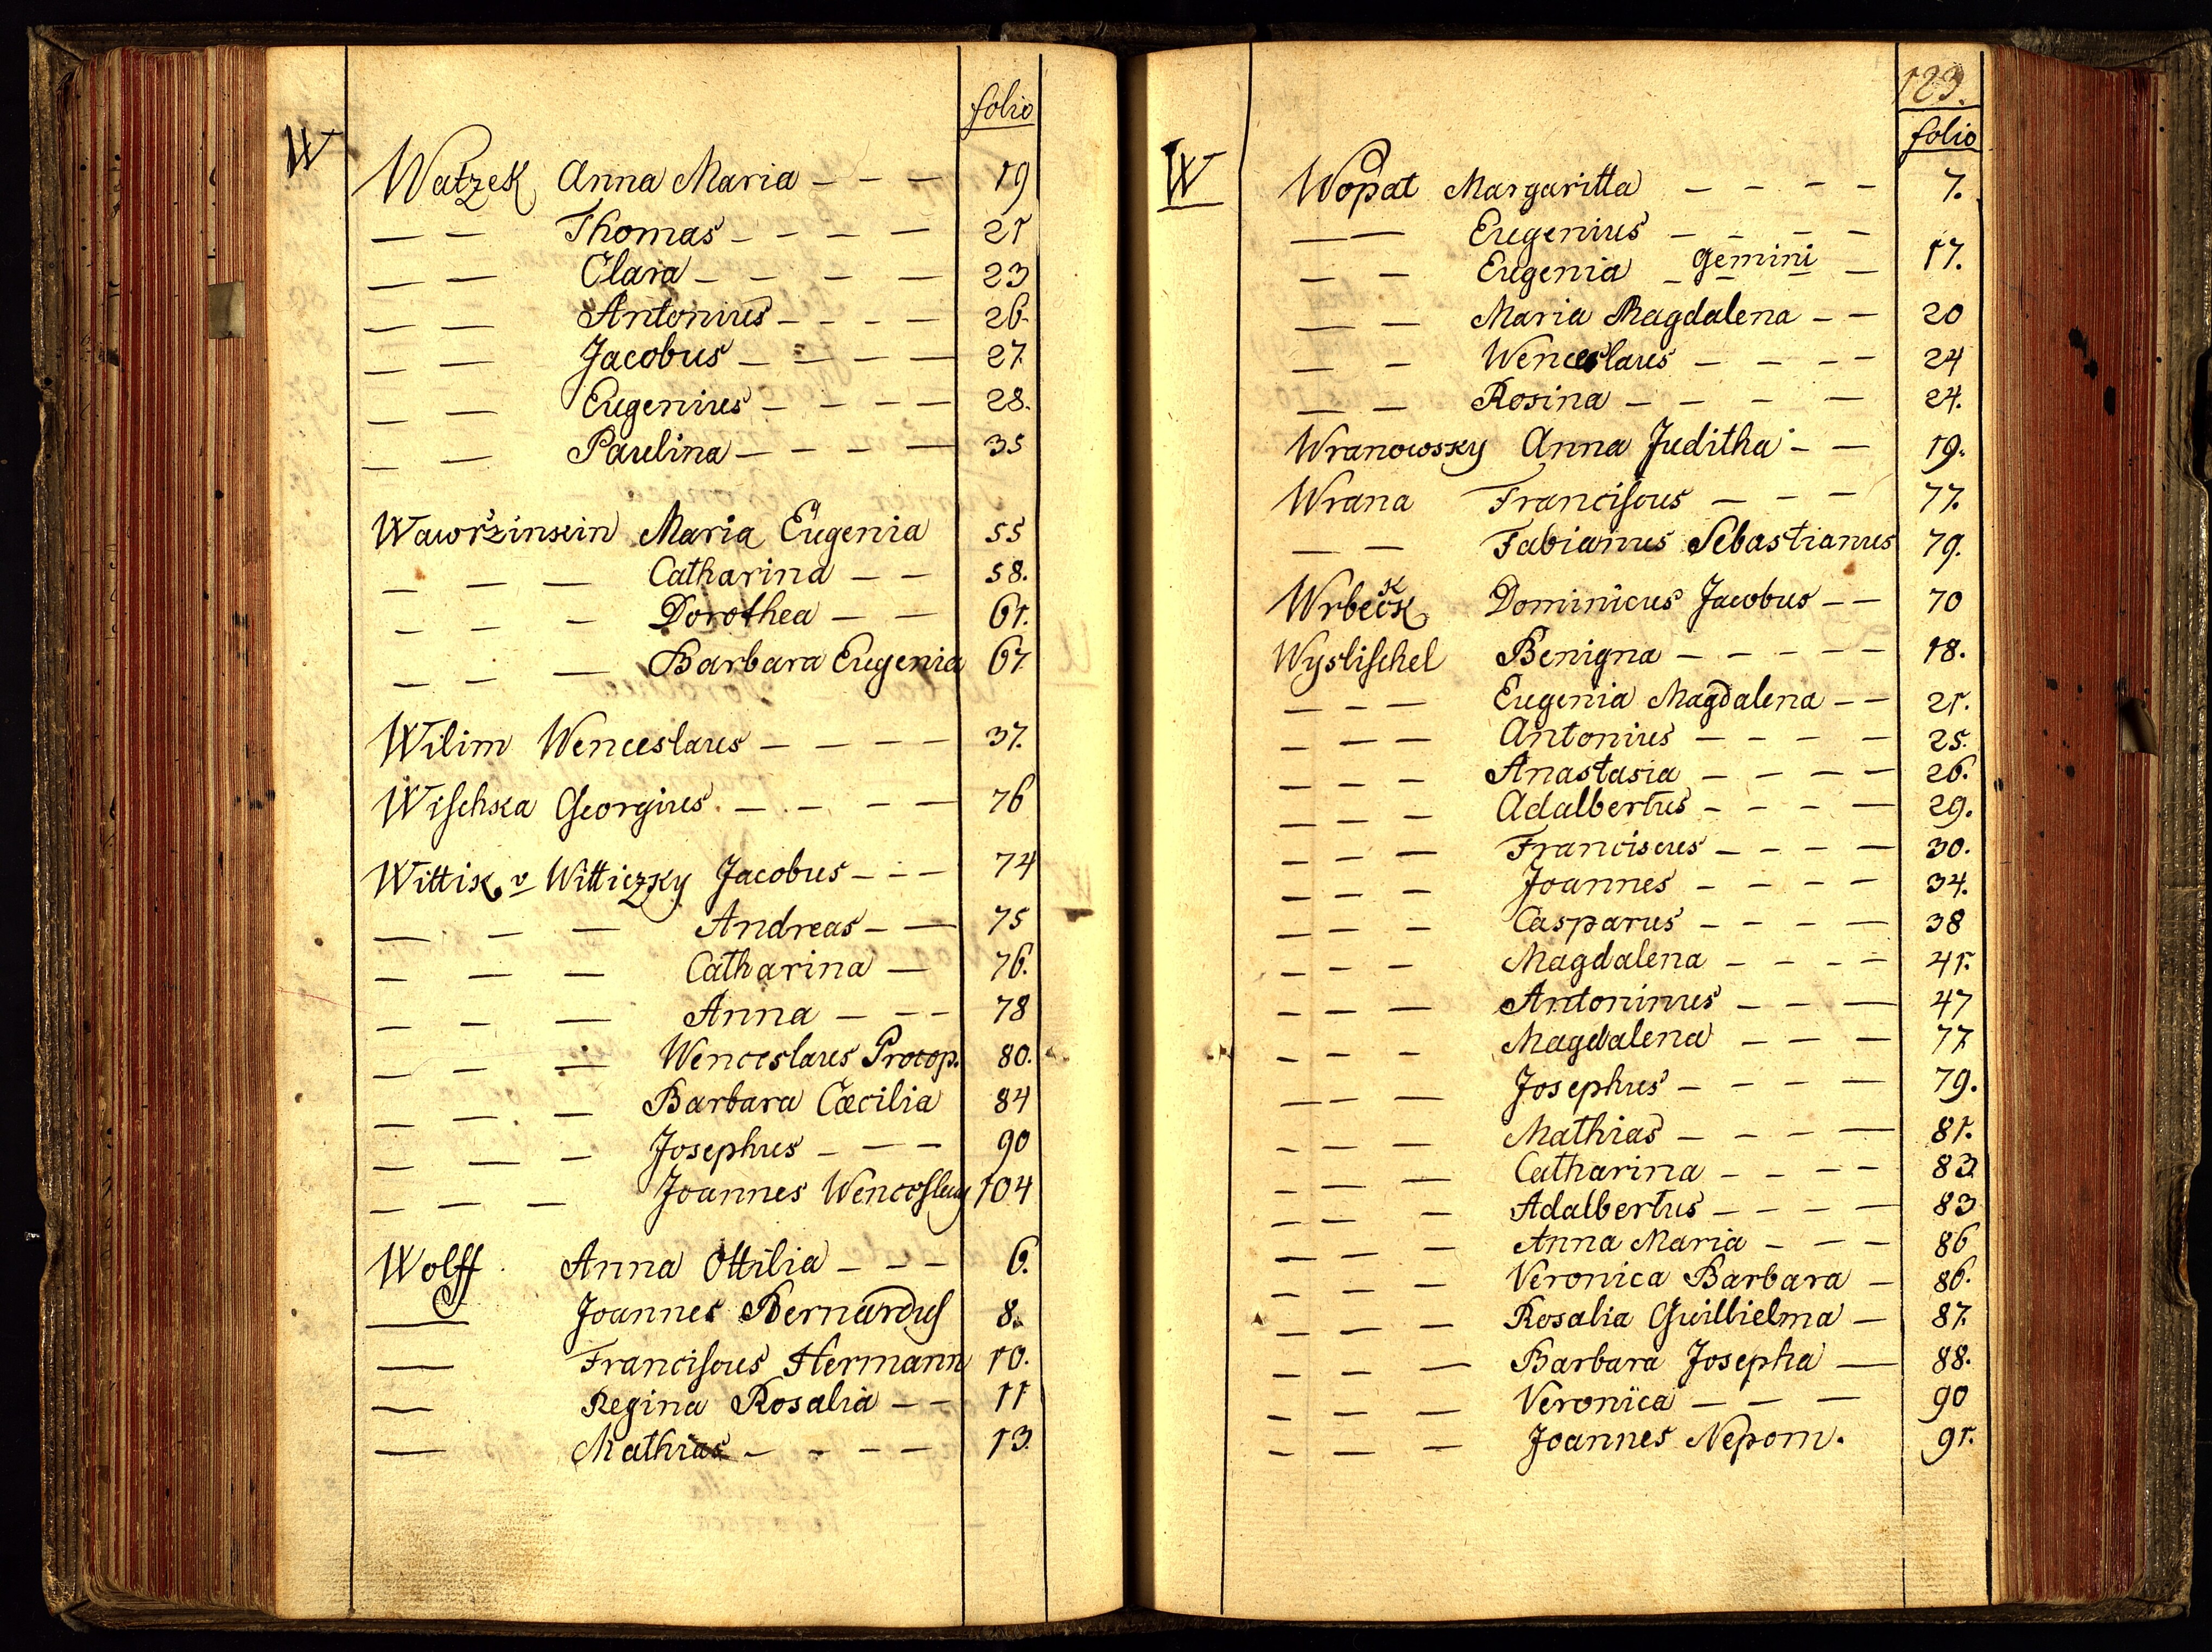 folio
W
Watzek Anna Maria - - - 19
— — Thomas - - - - 21
— — Clara - - - - 23
— — Antonius - - - - 26.
— — Jacobus - - - - 27.
— — Eugenius - - - - 28.
— — Paulina - - - - 35
Wawržinkin Maria Eugenia 55
— — — Catharina - - 58.
— — — Dorothea - - 61.
— — — Barbara Eugenia 67.
Wilim Wenceslaus - - - - 37.
Wischka Georgius. - - - - 76
Wittik v Witticzky Jacobus - - - 74
— — — Andreas - - 75
— — — Catharina - 76.
— — — Anna - - - 78
— — — Wenceslaus Procop. 80.
— — — Barbara Cæcilia 84
— — — Josephus - - - 90
— — — Joannes 104
Wolff Anna Ottilia - - - 6.
— Joannes Bernardus 8.
— Franciscus Hermann 10.
— Regina Rosalia - - 11
— Mathias - - - - 13.
123.
folio
W
Wopat Margaritta - - - - 7.
— — Eugenius - - - -
— — Eugenia - Gemini - 17.
— — Maria Magdalena - - 20
— — Wenceslaus - - - - 24
— — Rosina - - - - 24.
Wranowsky Anna Juditha - - 19.
Wrana Franciscus - - - 77.
— — Fabianus Sebastianus 79.
Wrbeck Dominicus Jacobus - - 70
Wyslischel Benigna - - - - - 18.
— — — Eugenia Magdalena - - 21.
— — — Antonius - - - - 25.
— — — Anastasia - - - - 26.
— — — Adalbertus - - - - 29.
— — — Franciscus - - - - 30.
— — — Joannes - - - - 34.
— — — Casparus - - - - 38
— — — Magdalena - - - - 41.
— — — Antoninus - - - 47
— — — Magdalena - - - 77.
— — — Josephus - - - - 79.
— — — Mathias - - - - 81.
— — — Catharina - - - - 83.
— — — Adalbertus - - - - 83
— — — Anna Maria - - - 86
— — — Veronica Barbara - 86.
— — — Rosalia Guillielma - 87.
— — — Barbara Josepha - 88.
— — — Veronica - - - 90
— — — Joannes Nepom. 91.